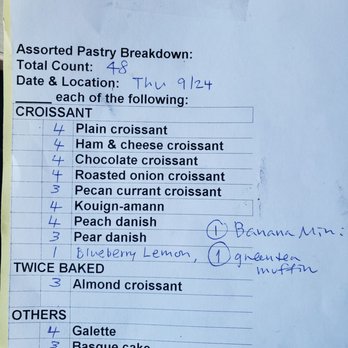 Assorted Pastry Breakdown:
Total Count: 48
Date & Location: Thu 9/24
_____ each of the following:
CROISSANT
4 Plain croissant
4 Ham & cheese croissant
4 Chocolate croissant
4 Roasted onion croissant
3 Pecan currant croissant
4 Kouign-amann
4 Peach danish
3 Pear danish ① Banana Mini
1 Blueberry Lemon, ① greentea
muffin
TWICE BAKED
3 Almond croissant
OTHERS
4 Galette
3 Basque cake